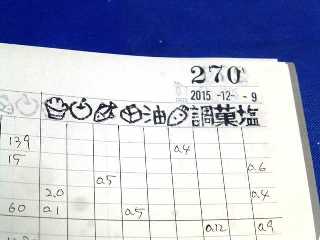 270
2015-12-9
油 調菓塩
139 0.4
15 0.6
0.5
2.0 0.4
60 0.1 0.5
0.12 0.9